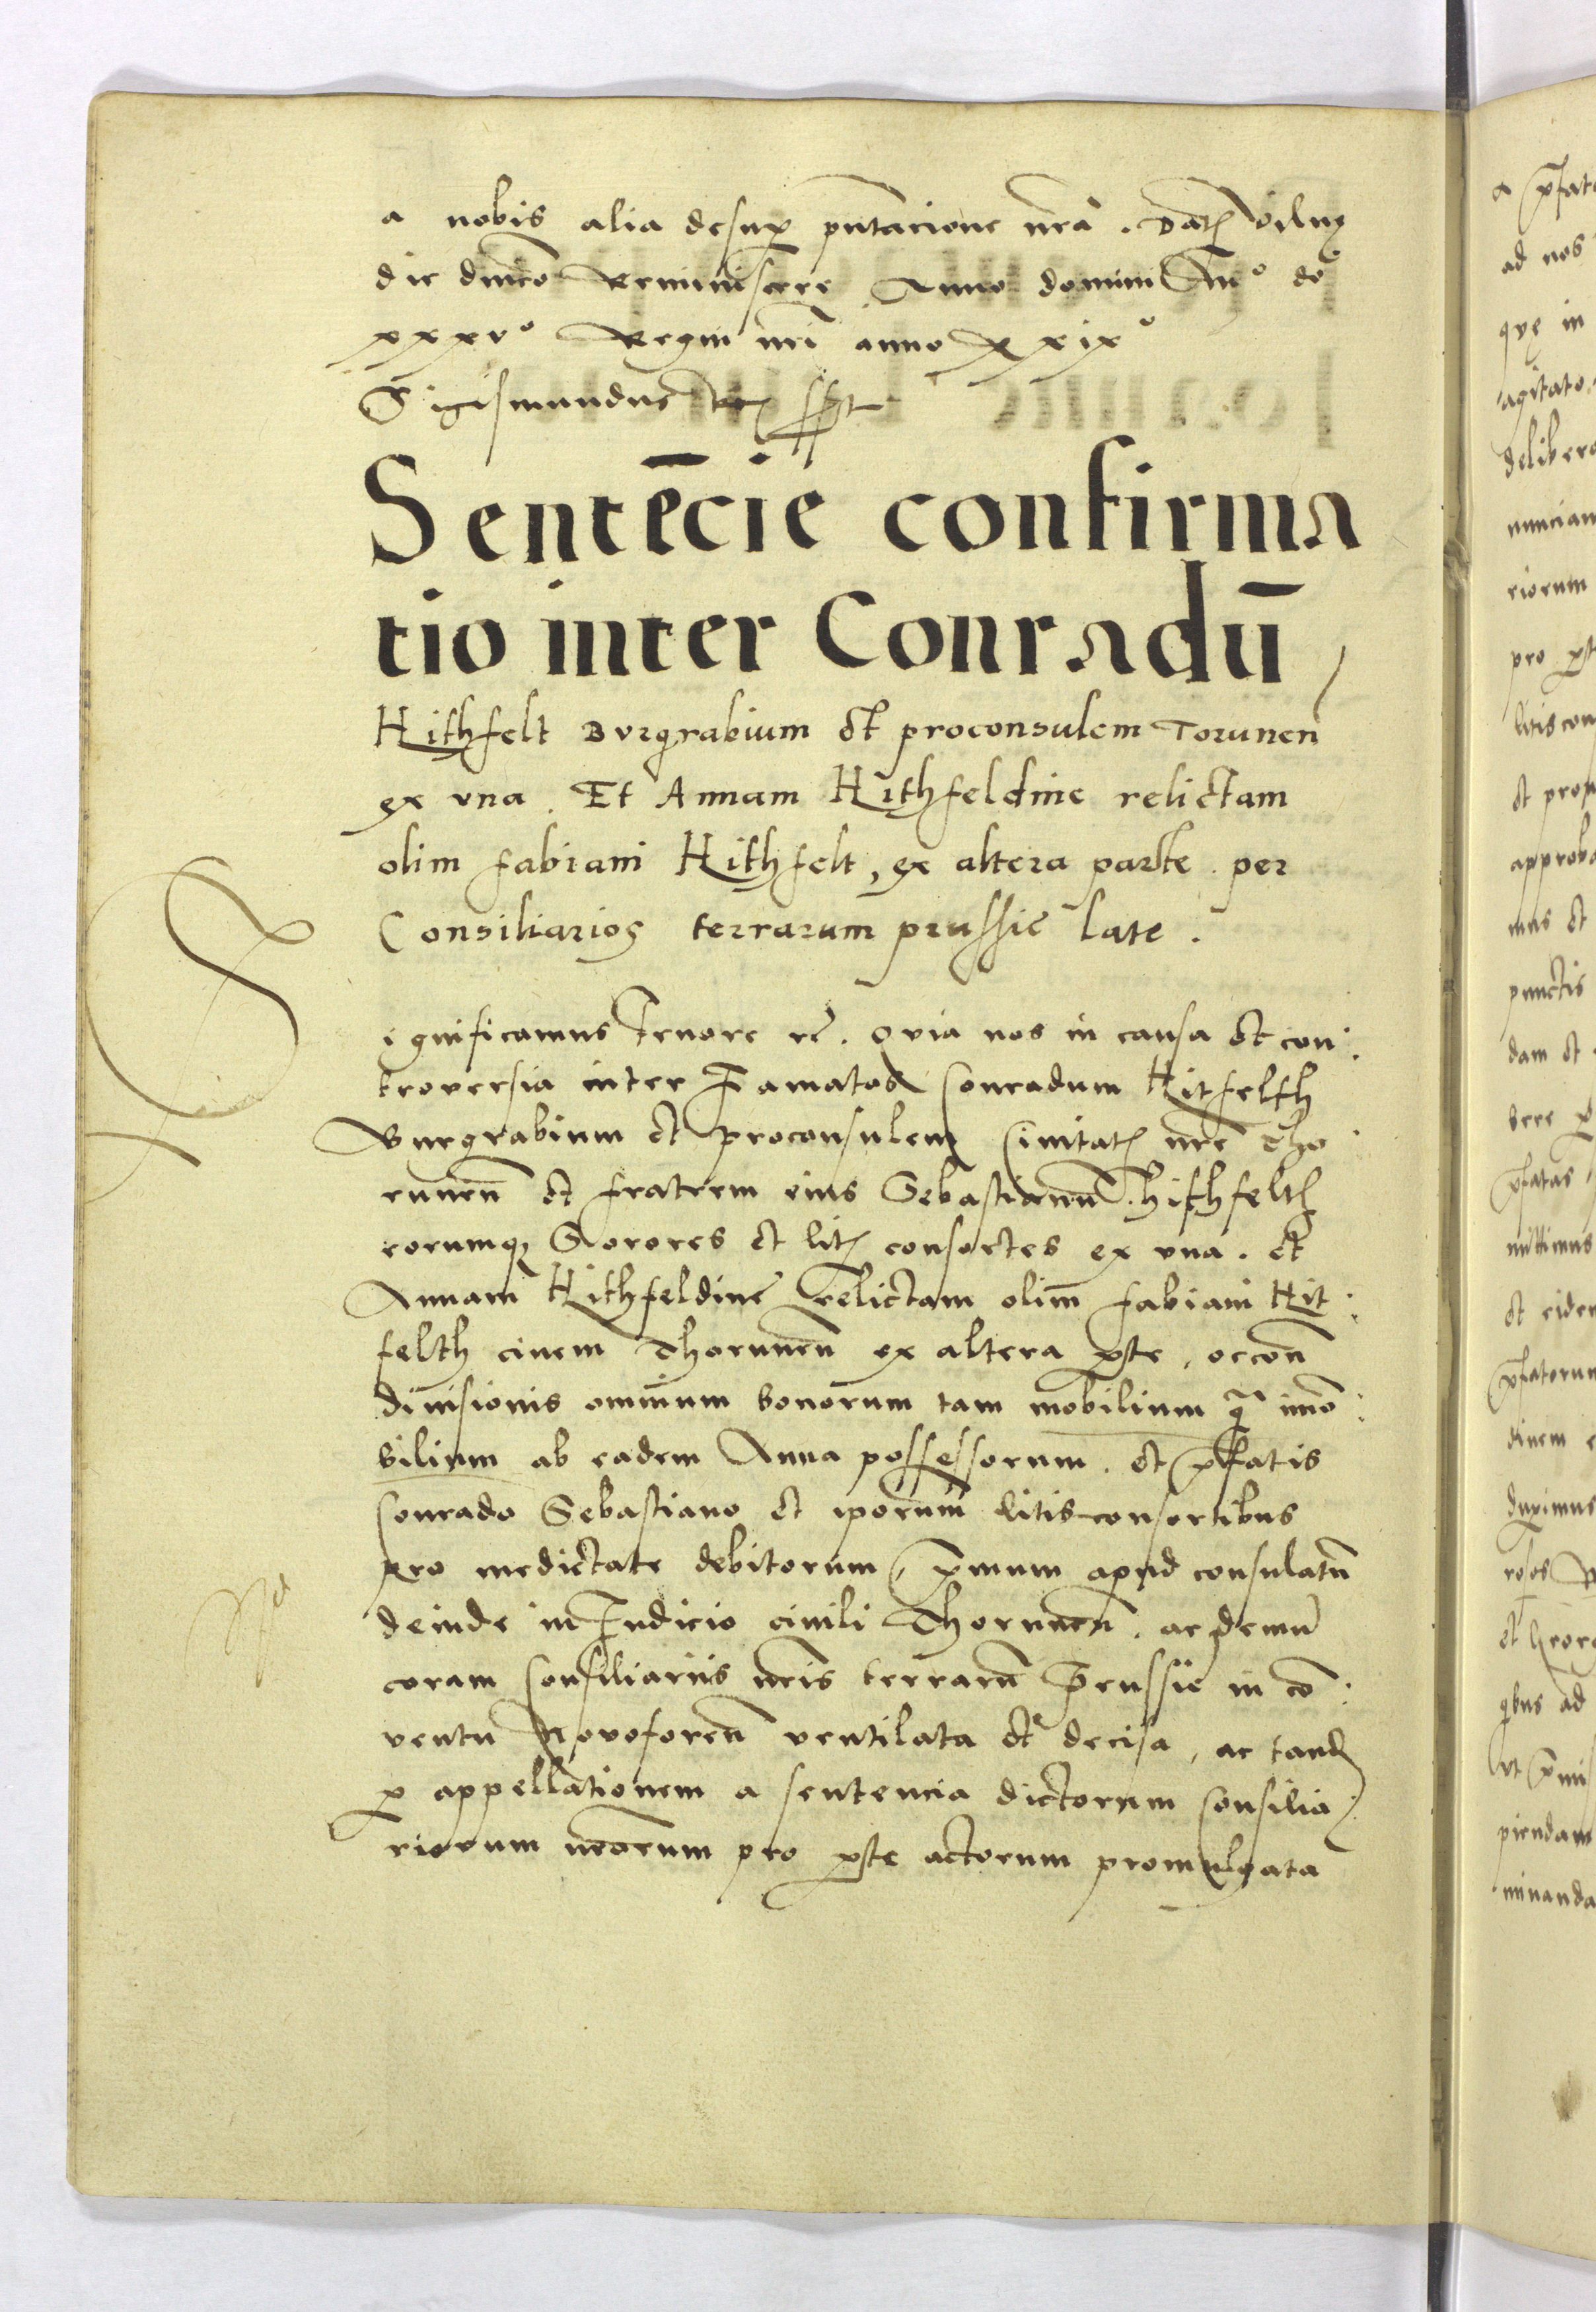 a nobis alia desup pntacione nrã . Dat Vilne
die dnico Reminiscere Anno domini Mº dº
xxxvº Regni nri anno xxixº
Sigismundus Rex sst
Sentēcie confirma
tio inter Conradū
Hithfelt Burgrabium et proconsulem Torunen
ex vna . Et Annam Hithfeldine relictam
olim fabiani Hithfelt, ex altera parte . per
Consiliarios terrarum prussie late .
S
ignificamus tenore rc̃ . Quia nos in causa et con:
troversia inter Famatos Conradum Hitfelth
Burgrabium et proconsulem Civitat nrẽ Tho:
runeñ et fratrem eius Sebastianū . hithfelth
eorumq Sorores et lit consortes ex vna . et
Annam Hithfeldinẽ relictam olim fabiani Hit:
felth civem Thoruneñ ex altera pte , occoñ
divisionis omnium bonorum tam mobilium q̃ imo:
bilium ab eadem Anna possessorum . et pfatis
Conrado Sebastiano et ipõrum litis consortibus
pro medietate debitorum , pmum apud consulatū
deinde in Iudicio civili Thoruneñ . ac demū
coram Consiliariis nris terrarū Prussie in cō:
ventu Novoforeñ ventilata et decisa , ac tand
p appellationem a sentencia dictorum Consilia:
riorum nrorum pro pte actorum promulgata
a pfat
ad nos
que in
agitato
delibera
nuncian
riorum
pro pte
litis con
et prop
approba
mus et
punctis
dam et
bere p
pfatas
mittimus
et eiden
pfatorum
dinem e
duximus
rosos
et Geor
qbus ad
ut pmis
piendam
minanda